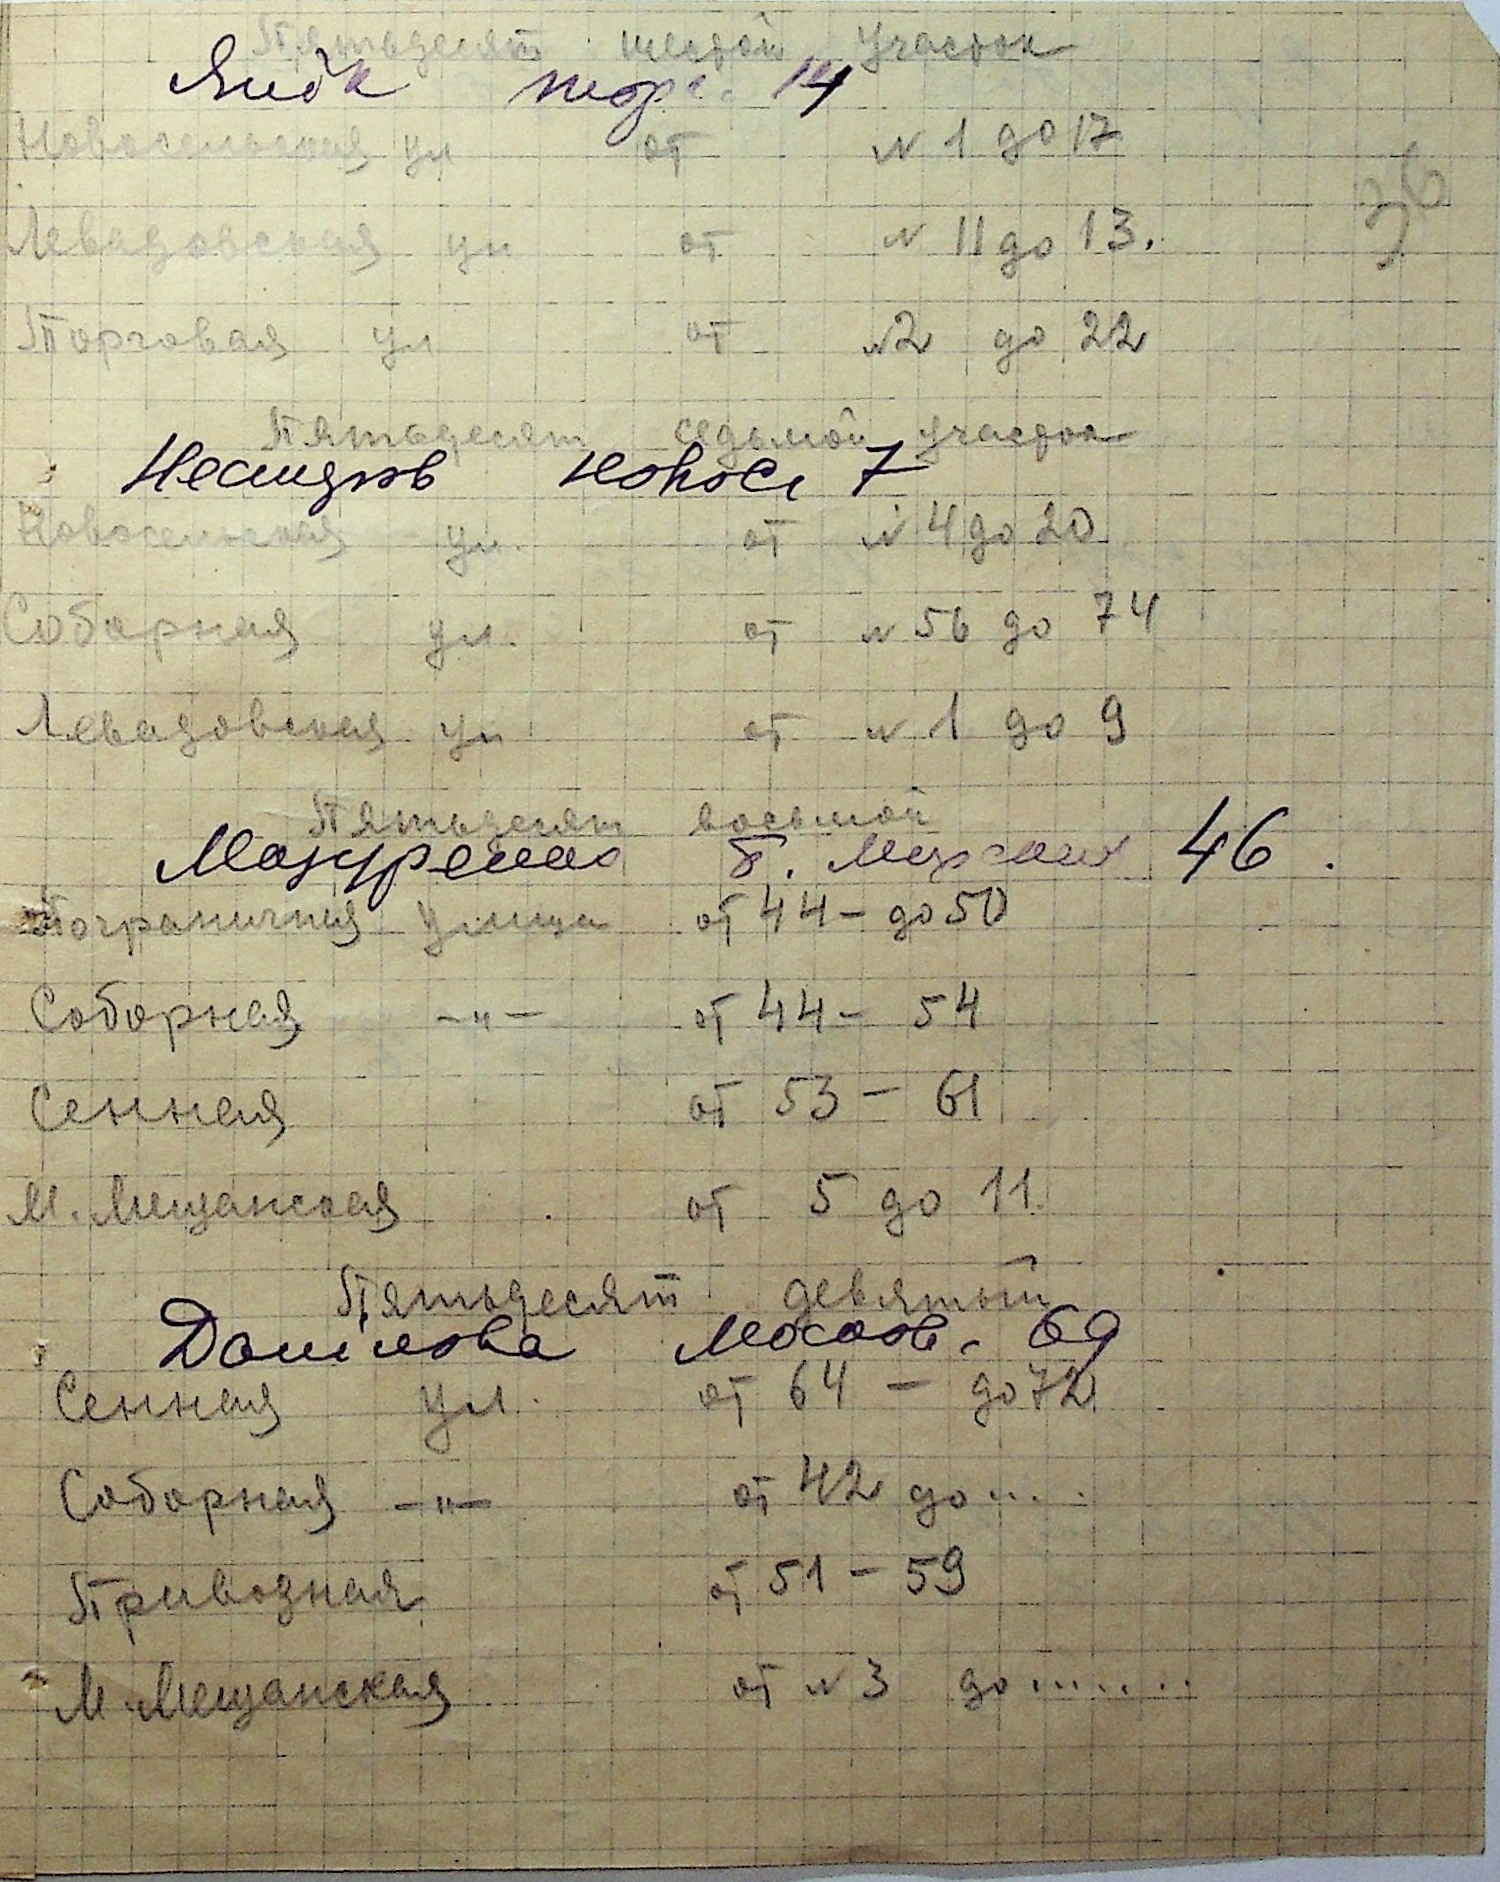 Пятьдесят шестой участок
торг. 14
Новосельская ул от № 1 до 17
36
Левадовская ул от № 11 до 13.
Торговая ул от № 2 до 22
Пятьдесят седьмой участок
новос 7
Новосельская ул. от № 4 до 20
Соборная ул. от № 56 до 74
Левадовская ул от № 1 до 9
Пятьдесят восьмой
Мазуренко Б. 46.
Пограничная улица от 44 - до 50
Соборная -"- от 44 - 54
Сенная от 53 - 61
М. Мещанская от 5 до 11
Пятьдесят девятый
Данілова Москов. 69
Сенная ул. от 64 - до 72
Соборная -"- от 42 до ....
Привозная от 51 - 59
М. Мещанская от № 3 до .......